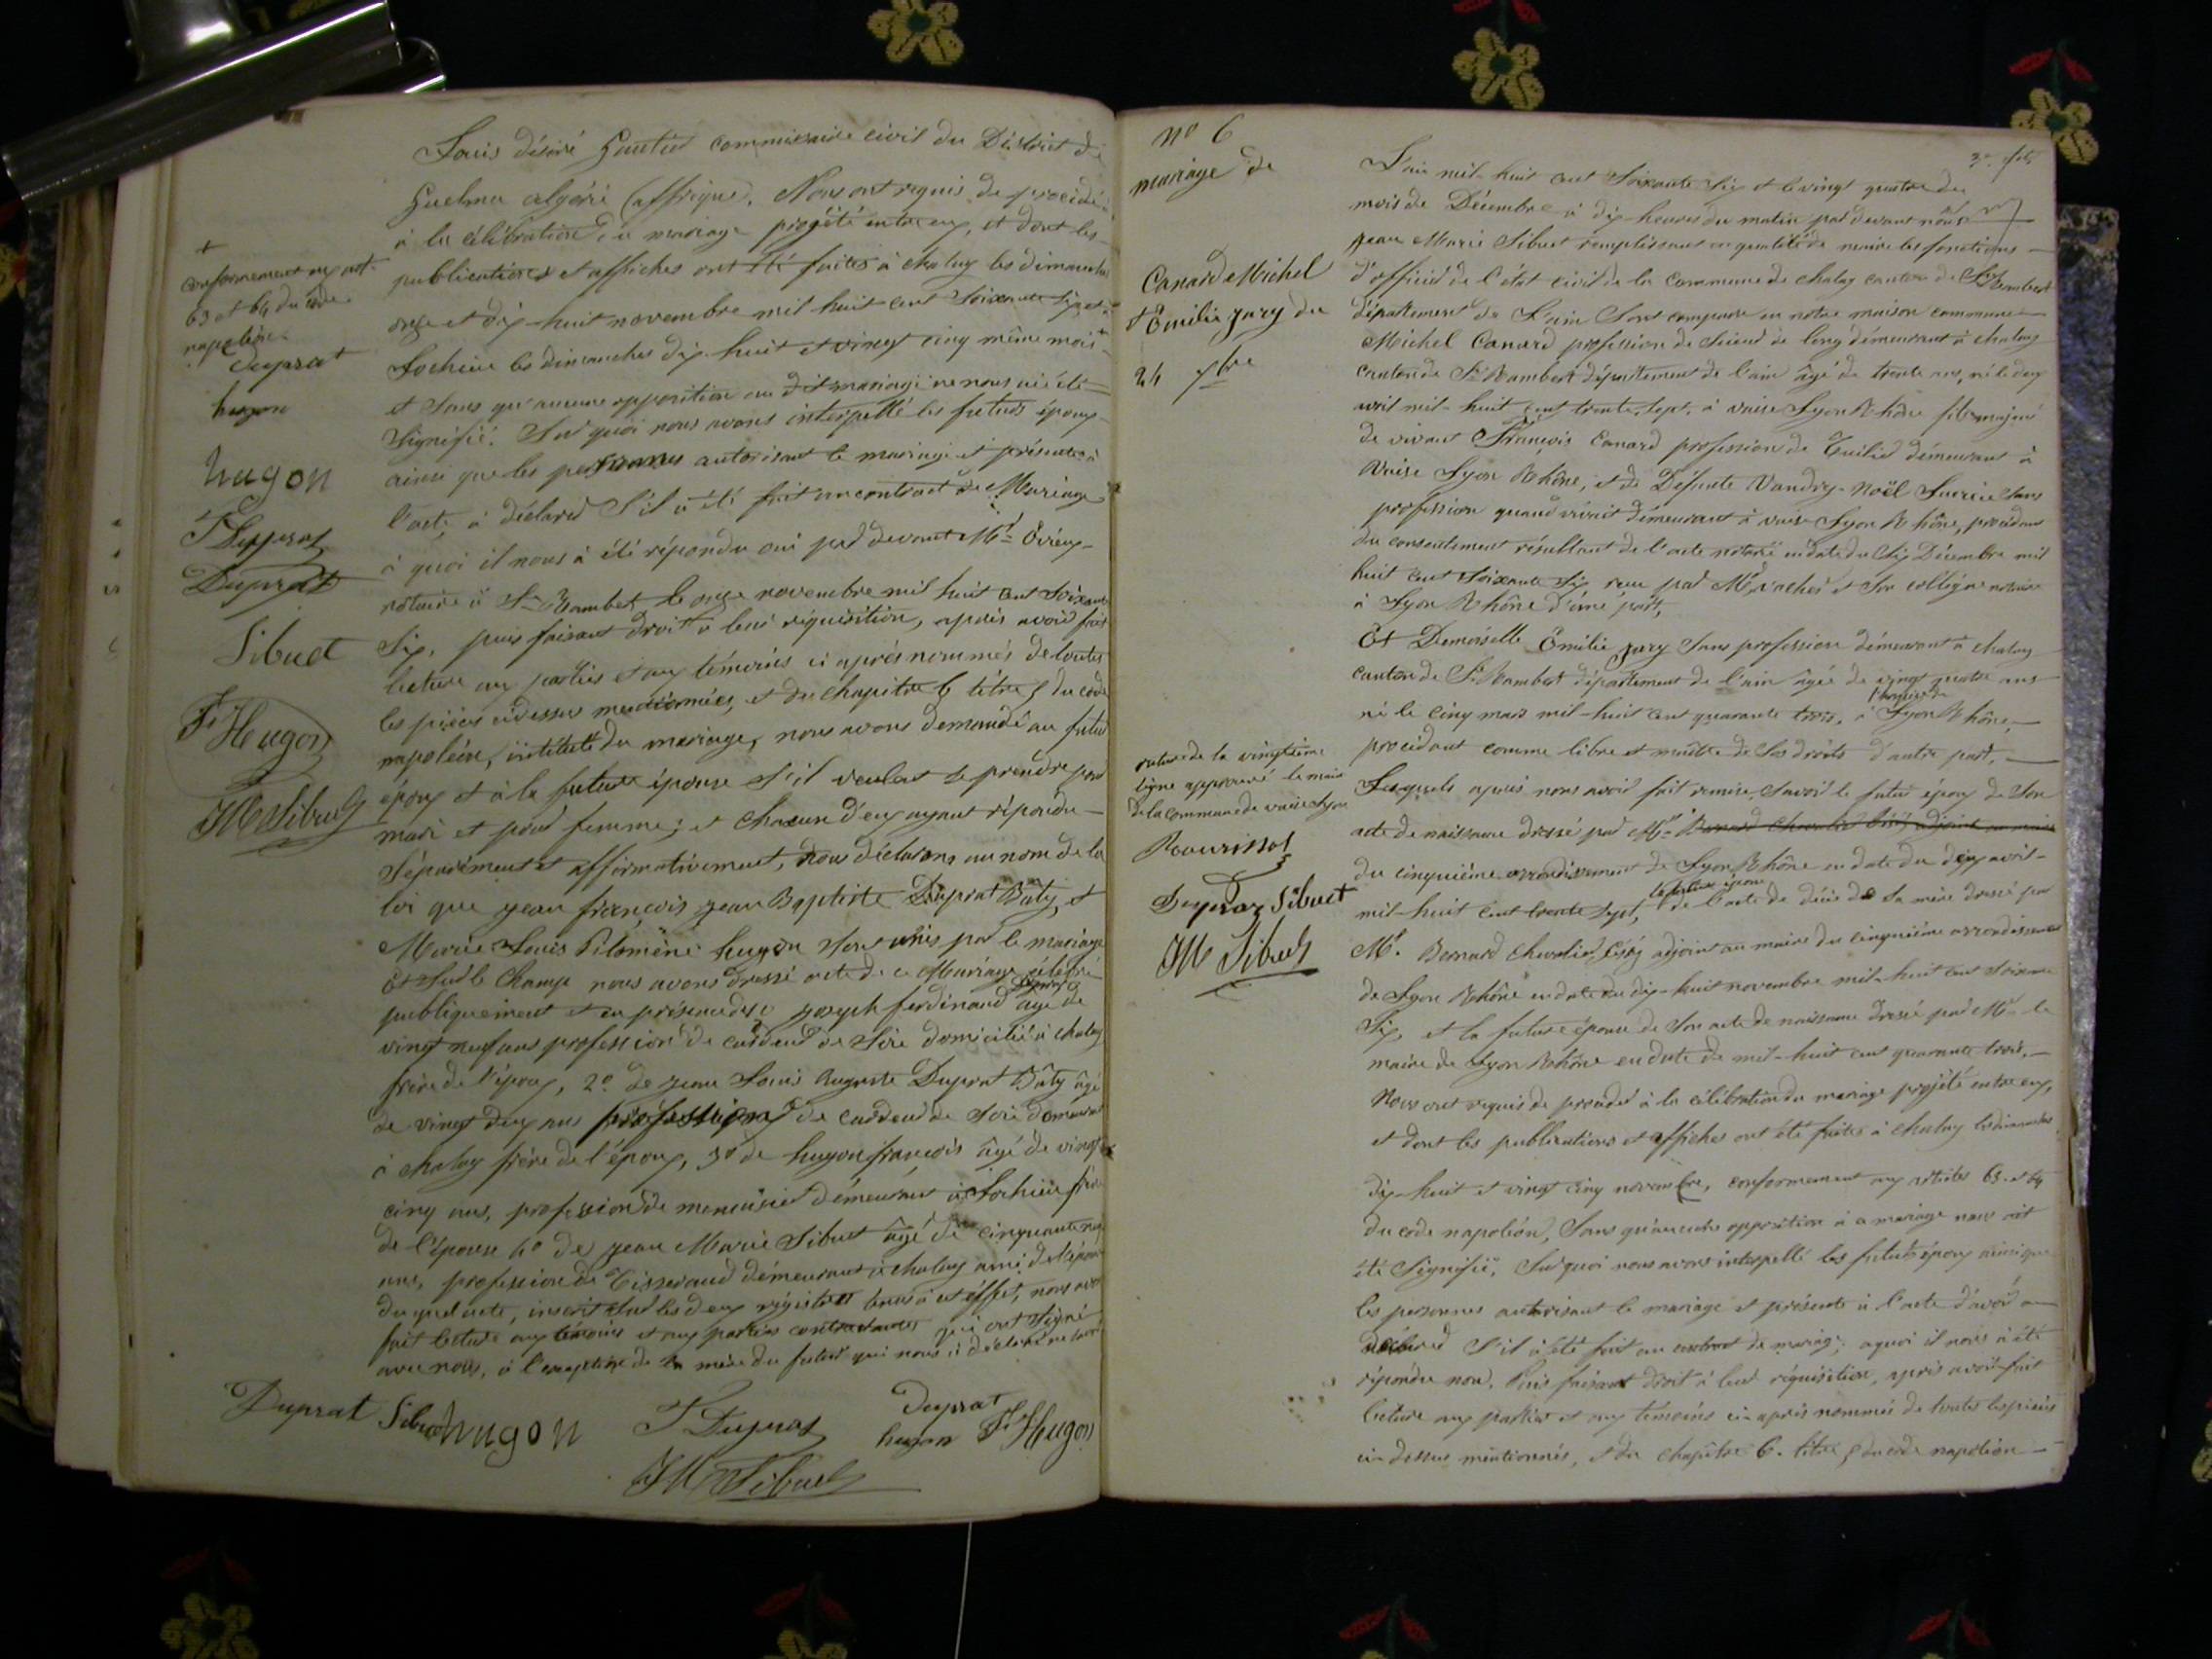 Louis désiré Gautier commissaire civil du District de
Guelma algérie (affrique). Nous ont requis de procéder
à la célébration du mariage projété entre eux, et dont les
publications et affiches ont été faites à chaley les dimanches
onze et dix-huit novembre mil huit cent soixante six et à
Lochieu les dimanches dix-huit et vingt cinq même mois +
et sans qu'aucune opposition au dit mariage ne nous ai été
signifié. Sur quoi nous avons interpellé les futurs époux
ainsi que les personnes autorisant le mariage et présentes à
l'acte, à déclarer s'il a été fait un contract de Mariage
à quoi il nous à été répondu oui par devant Me
notaire à St Rambert le onze novembre mil huit cent soixante
six, puis faisant droit à leur réquisition, après avoir fait
lecture aux parties et aux témoins ci après nommés de toutes
les pièces cidessus mentionnées, et du chapitre 6 titre 5 du code
napoléon, intitulé du mariage, nous avons demandé au futur
époux et à la future épouse s'il veulent se prendre pour
mari et pour femme; et chacun d'eux ayant répondu
séparément et affirmativement, nous déclarons au nom de la
loi que jean françois jean Baptiste Duprat Bâty, et
Marie Louis Pilomène hugon sont unis par le mariage
Et sur le champ nous avons dressé acte de ce Mariage célébré
publiquement et en présence de 1º joseph ferdinand Duprat âgé de
vingt neuf ans profession de cardeur de soie domicilié à chaley
frère de l'époux, 2º de jean Louis Auguste Duprat Bâty âgé
de vingt deux ans profession de cardeur de soie démeurant
à chaley frère de l'époux, 3º de hugon françois âgé de vingt
cinq ans, profession de menuisier démeurant à Lochieu frère
de l'épouse 4º de jean Marie Sibuet âgé de cinquante
ans, profession de Tisserand démeurant à chaley ami de l'époux
du quel acte, inscrit sur les deux régistres tenus à cet éffet, nous avons
fait lecture aux témoins et aux parties contractantes qui ont signé
avec nous, à l'exception de la mère du futur qui nous à déclaré ne savoir
Duprat Sibuet hugon J Dupras Duprat hugon Fs Hugon
JM Sibuet
+
conformement aux art.
63 et 64 du code
napoléon.
Duprat
hugon
hugon
J Dupras
Duprat
Sibuet
Fs Hugon
JM Sibuet
Nº 6
mariage de
Canard Michel
et Emilie jury du
24 xbre
L'ain mil-huit cent soixante six et le vingt quatre du
mois de Décembre à dix heures du matin par devant nous
jean Marie Sibuet remplissant en qualité de maire les fonctions
d'officier de l'état civil de la commune de chaley canton de St Rambert
département de L'ain sont comparu en notre maison commune
Michel Canard profession de scieur de long démeurant à chaley
canton de St Rambert département de l'ain âgé de trente ans, né le deux
avril mil-huit cent trente sept, à vaise Lyon Rhône fils majeur
de vivant François Canard profession de Tuilier démeurant à
Vaise Lyon Rhône, et de Défunte Vaudry-Noël Lucrèce sans
profession quand vivait démeurant à vaise Lyon Rhône, procédant
du consentement résultant de l'acte notarié en date du six Décembre mil
huit cent soixante six reçu par Me vachés et son collègue notaire
à Lyon Rhône d'une part,
Et Demoiselle Emilie jury sans profession démeurant à chaley
canton de St Rambert département de l'ain âgée de vingt quatre ans
né le cinq mars mil-huit cent quarante trois, à l'hospice de Lyon Rhône,
procédant comme libre et maître de ses droits d'autre part.
Lesquels après nous avoir fait remise, savoir le futur époux de son
acte de naissance dressé par Mr Bernard Chevalier adjoint au maire
du cinquième arrondissement de Lyon Rhône en date du deux avril
mil-huit cent trente sept, le futur époux de l'acte de décès de sa mère dressé par
Mr. Bernard Chevalier adjoint au maire du cinquième arrondissement
de Lyon Rhône en date du dix-huit novembre mil-huit cent soixante
six, et la future épouse de son acte de naissance dressé par Mr le
maire de Lyon Rhône en date de mil-huit cent quarante trois,
Nous ont requis de procéder à la célébration du mariage projété entre eux,
et dont les publications et affiches ont été faites à chaley les dimanches
dix-huit et vingt cinq novembre, conformement aux articles 63 et 64
du code napoléon, sans qu'aucune opposition à ce mariage nous ait
été signifié. Sur quoi nous avons interpellé les futurs époux ainsi que
les personnes autorisant le mariage et présente à l'acte d'avoir à
déclarer s'il à été fait un contrat de mariage; a quoi il nous à été
répondu non. Puis faisant droit à leur réquisition, après avoir fait
lecture aux parties et aux témoins ci-après nommés de toutes les pièces
ci-dessus mentionnés, et du chapitre 6. titre 5 du code napoléon
rature de la vingtième
ligne approuvé le maire
de la commune de vaise Lyon
Dupraz Sibuet
JM Sibuet